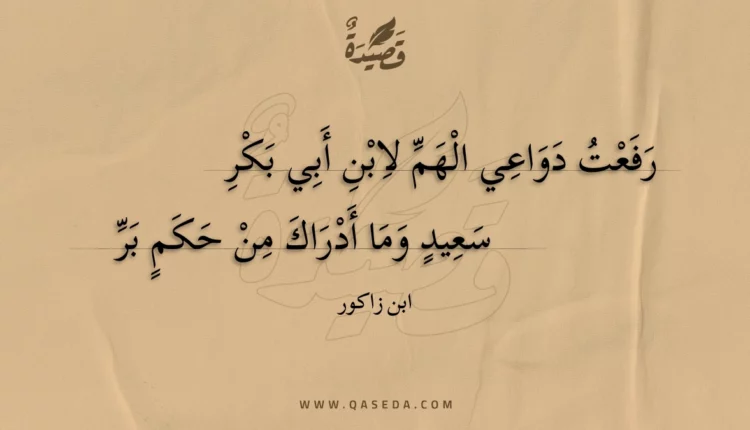 قَصِيدَةٌ
رَفَعْتُ دَوَاعِي الْهَمِّ لِابْنِ أَبِي بَكْرِ
سَعِيدٍ وَمَا أَدْرَاكَ مِنْ حَكَمٍ بَرِّ
ابن زاكور
WWW.QASEDA.COM